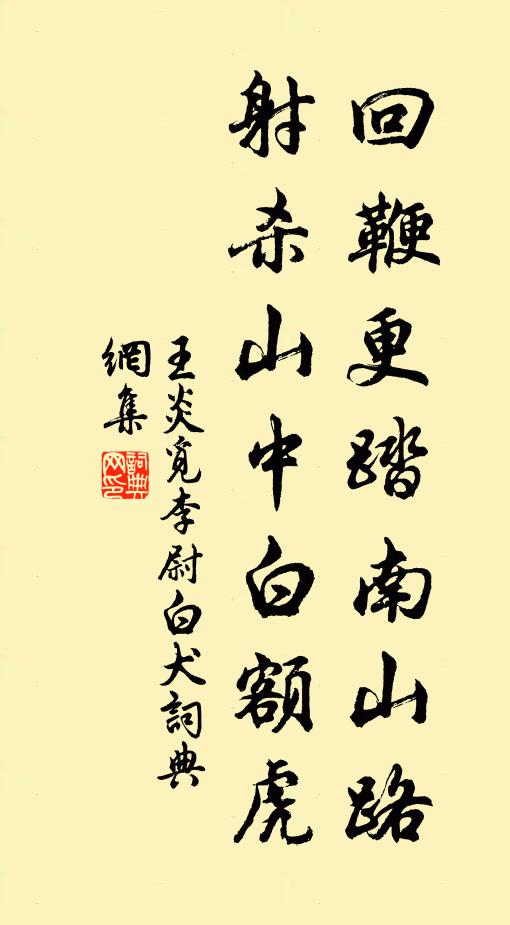 回鞭更踏南山路
射杀山中白额虎
王炎覓李尉白犬詞典
網集
詞典網印